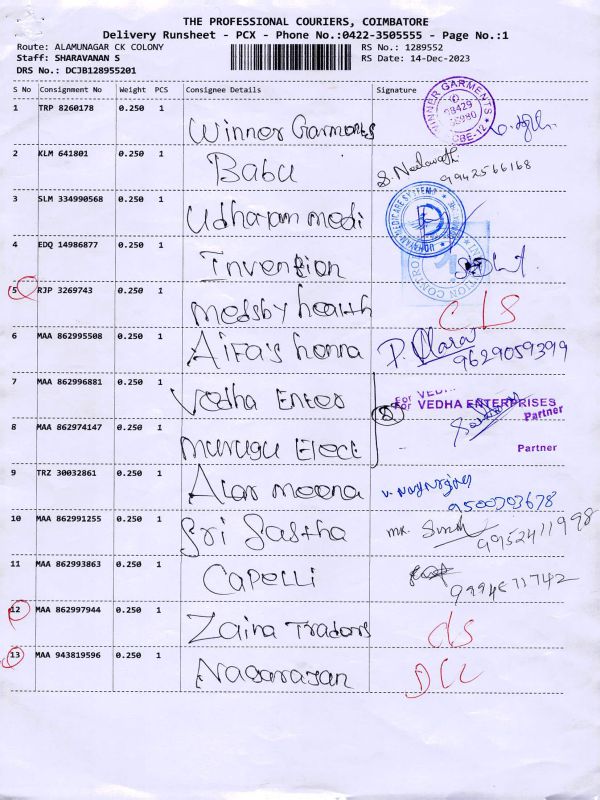 THE PROFESSIONAL COURIERS, COIMBATORE
Delivery Runsheet - PCX - Phone No.:0422-3505555 - Page No.:1
Route: ALAMUNAGAR CK COLONY RS No.: 1289552
Staff: SHARAVANAN S RS Date: 14-Dec-2023
DRS No.: DCJB128955201
S No Consignment No Weight PCS Consignee Details Signature
1 TRP 8260178 0.250 1 Winner Garments
WINNER GARMENTS
CBE-12
2 KLM 641801 0.250 1 Babu
9942566168
3 SLM 334990568 0.250 1 Udhayam medi
UDHAYAM MEDICARE SYSTEMS
4 EDQ 14986877 0.250 1 Invention
5 RJP 3269743 0.250 1 Medsby health CLS
6 MAA 862995508 0.250 1 Aifa's henna 9629059399
7 MAA 862996881 0.250 1 Vedha Enter
For VEDHA ENTERPRISES
Partner
8 MAA 862974147 0.250 1 Murugu Elect
Partner
9 TRZ 30032861 0.250 1 Alar moona
9500703678
10 MAA 862991255 0.250 1 Sri Sastha 9952411998
11 MAA 862993863 0.250 1 Capelli 9994671742
12 MAA 862997944 0.250 1 Zaina Traders CLS
13 MAA 943819596 0.250 1 Nagarajan DCL